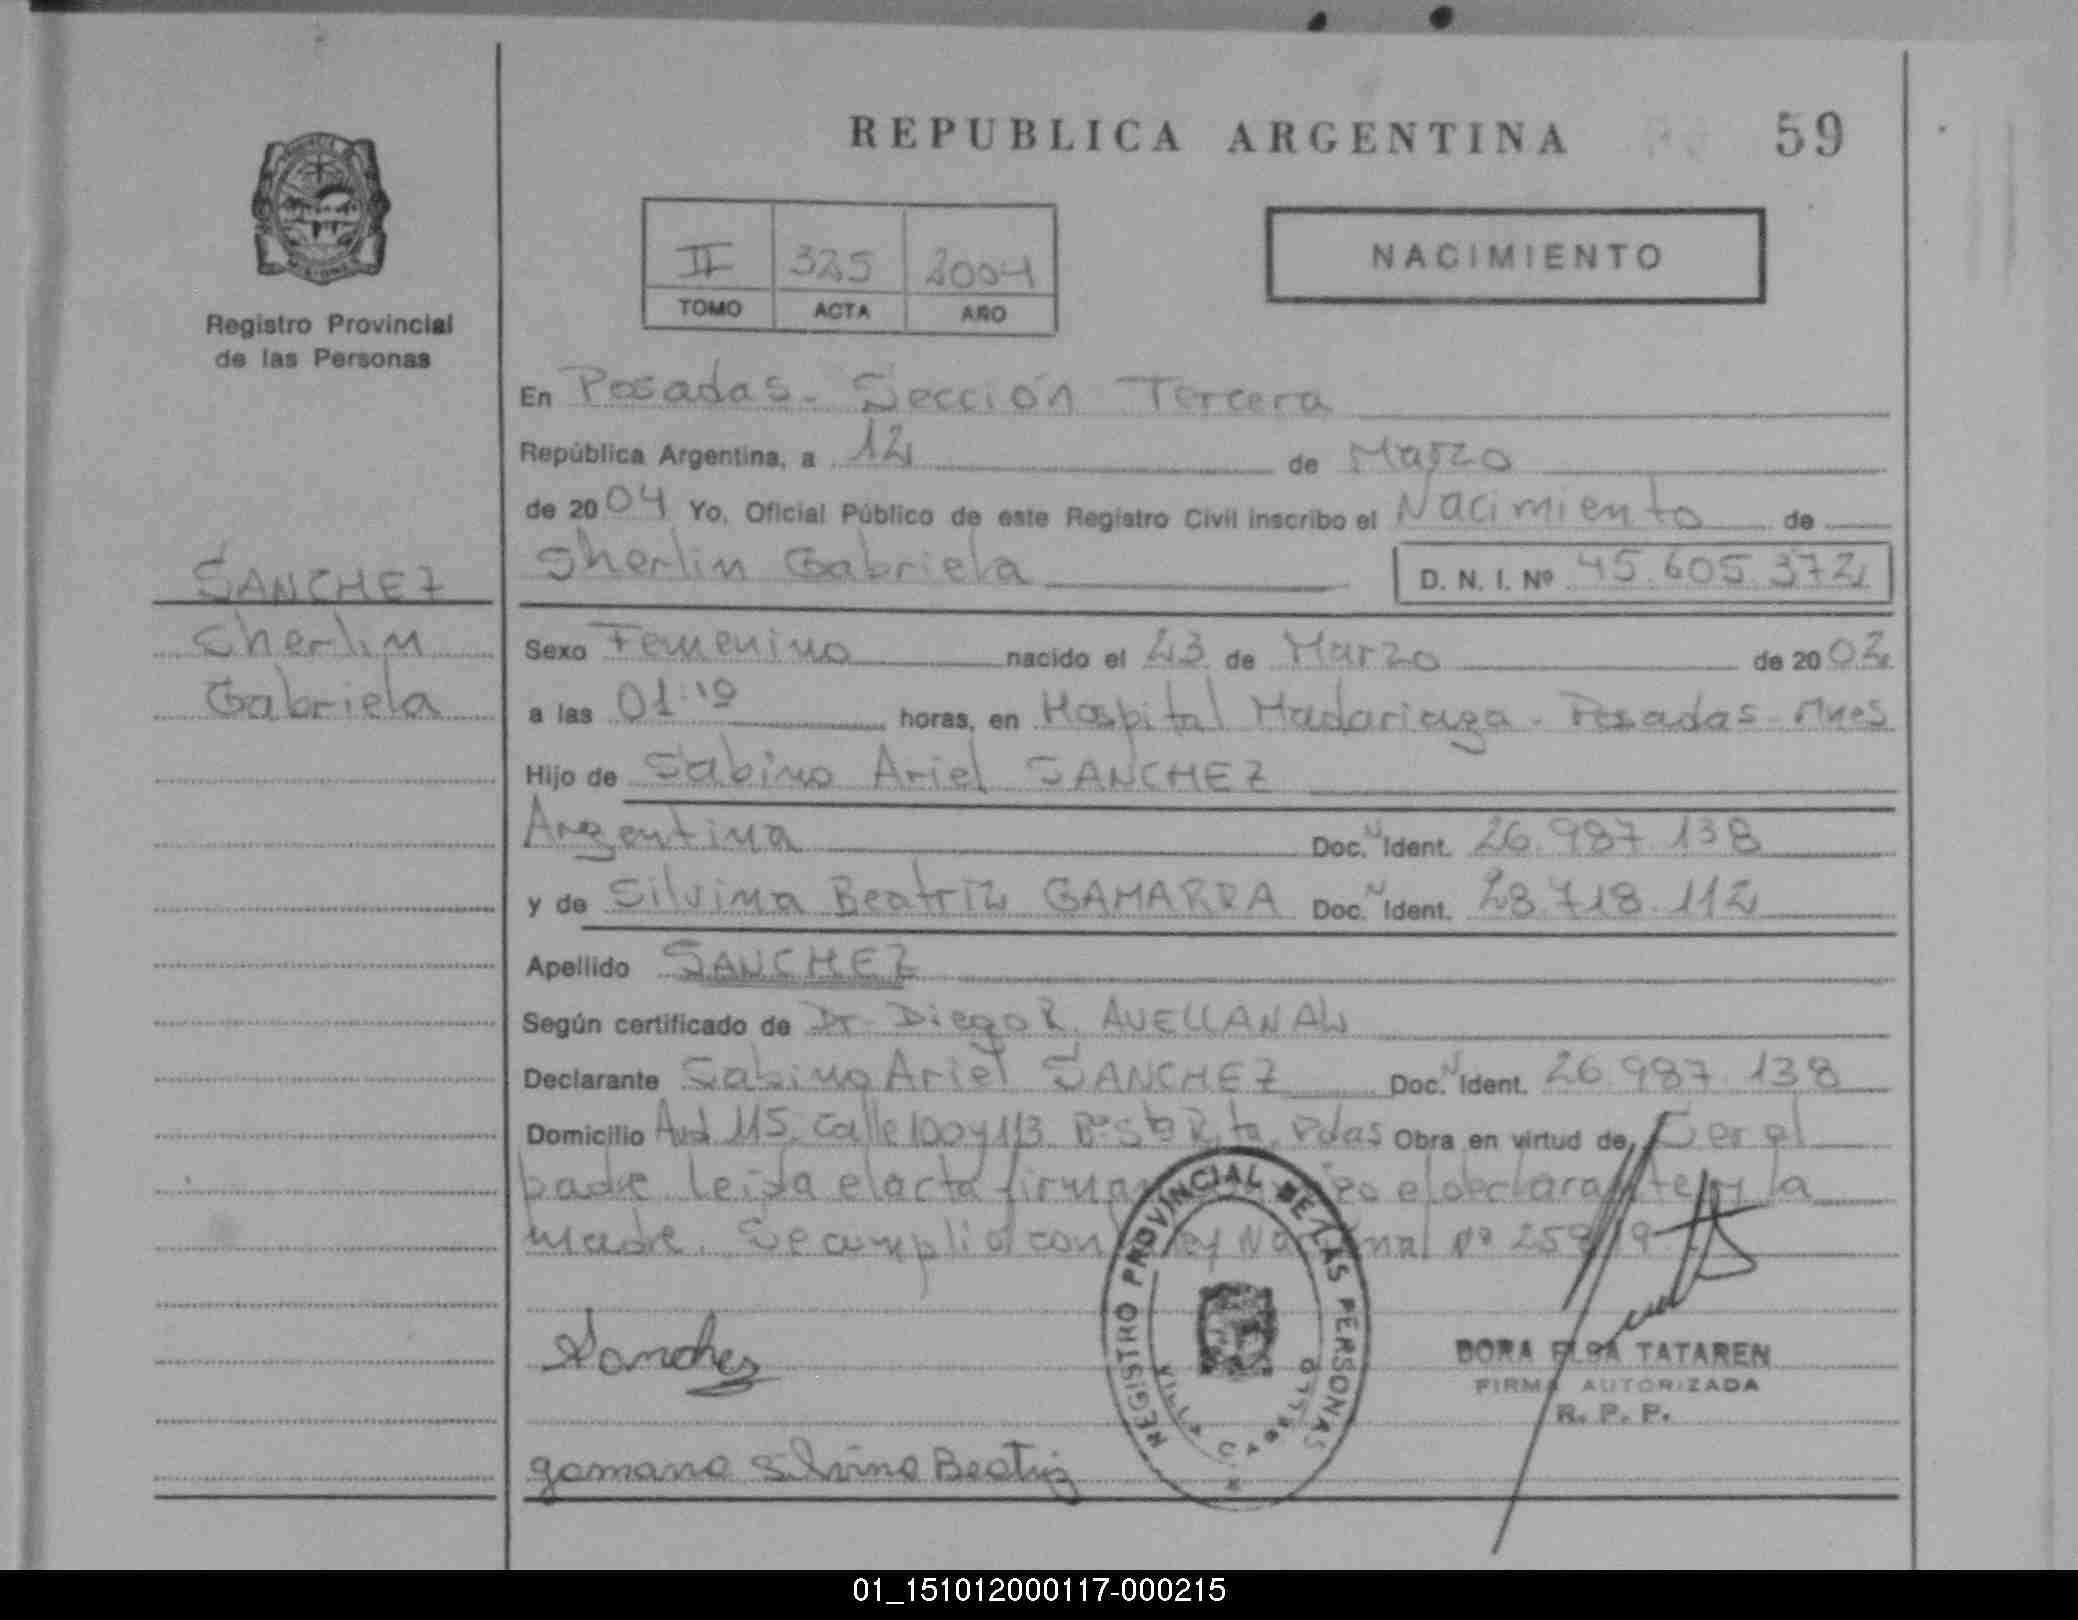 REPUBLICA ARGENTINA 59
II 325 2004
TOMO ACTA AÑO
NACIMIENTO
Registro Provincial
de las Personas
SANCHEZ
Sherlin
Gabriela
En Posadas - Sección Tercera
República Argentina, a 12 de Marzo
de 2004 Yo, Oficial Público de este Registro Civil inscribo el Nacimiento de
Sherlin Gabriela D. N. I. Nº 45.605.372
Sexo Femenino nacido el 23 de Marzo de 2002
a las 01:10 horas, en Hospital Madariaga - Posadas - Mnes
Hijo de Sabino Ariel SANCHEZ
Argentina Doc. N Ident. 26.987.138
y de Silvina Beatriz GAMARRA Doc. N Ident. 28.718.112
Apellido SANCHEZ
Según certificado de Dr. Diego R. AVELLANAL
Declarante Sabino Ariel SANCHEZ Doc. N Ident. 26.987.138
Domicilio Avd 115. Calle 100 y 113. Bº Sta Rita. Pdas Obra en virtud de Ser el
padre. Leida el acta firman el declarante y la
madre. Se cumplió con Ley Nacional Nº
Sanchez
gamarra Silvina Beatriz
REGISTRO PROVINCIAL DE LAS PERSONAS
VILLA CABELLO
DORA ELSA TATAREN
FIRMA AUTORIZADA
R. P. P.
01_151012000117-000215